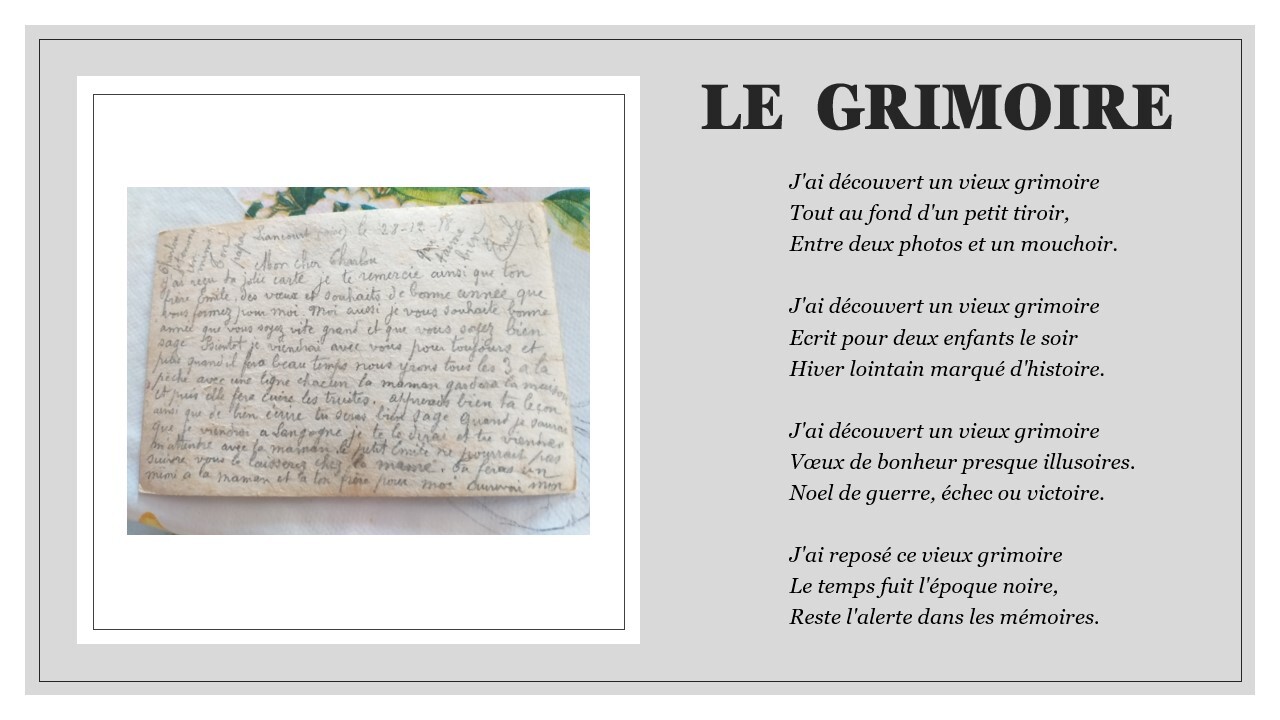 Liancourt le 28-12-18
Mon cher Charlou
J'ai reçu ta jolie carte je te remercie ainsi que ton
frère Emile, des vœux et souhaits de bonne année que
vous formez pour moi. Moi aussi je vous souhaite bonne
année que vous soyez vite grand et que vous soyez bien
sage Bientot je viendrai avec vous pour toujours et
puis quand il fera beau temps nous yrons tous les 3 a la
pêche avec une ligne chacun la maman gardera la maison
et puis elle fera cuire les truites. apprends bien ta leçon
ainsi que de bien écrire tu seras bien sage Quand je saurai
que je viendrai a Langogne je te le dirai et tu viendras
m'attendre avec la maman le petit Emile ne pourrait pas
suivre vous le laisserez chez la mame. Tu feras un
mimi a la maman et a ton frère pour moi Aurevoir mon
LE GRIMOIRE
J'ai découvert un vieux grimoire
Tout au fond d'un petit tiroir,
Entre deux photos et un mouchoir.
J'ai découvert un vieux grimoire
Ecrit pour deux enfants le soir
Hiver lointain marqué d'histoire.
J'ai découvert un vieux grimoire
Vœux de bonheur presque illusoires.
Noel de guerre, échec ou victoire.
J'ai reposé ce vieux grimoire
Le temps fuit l'époque noire,
Reste l'alerte dans les mémoires.